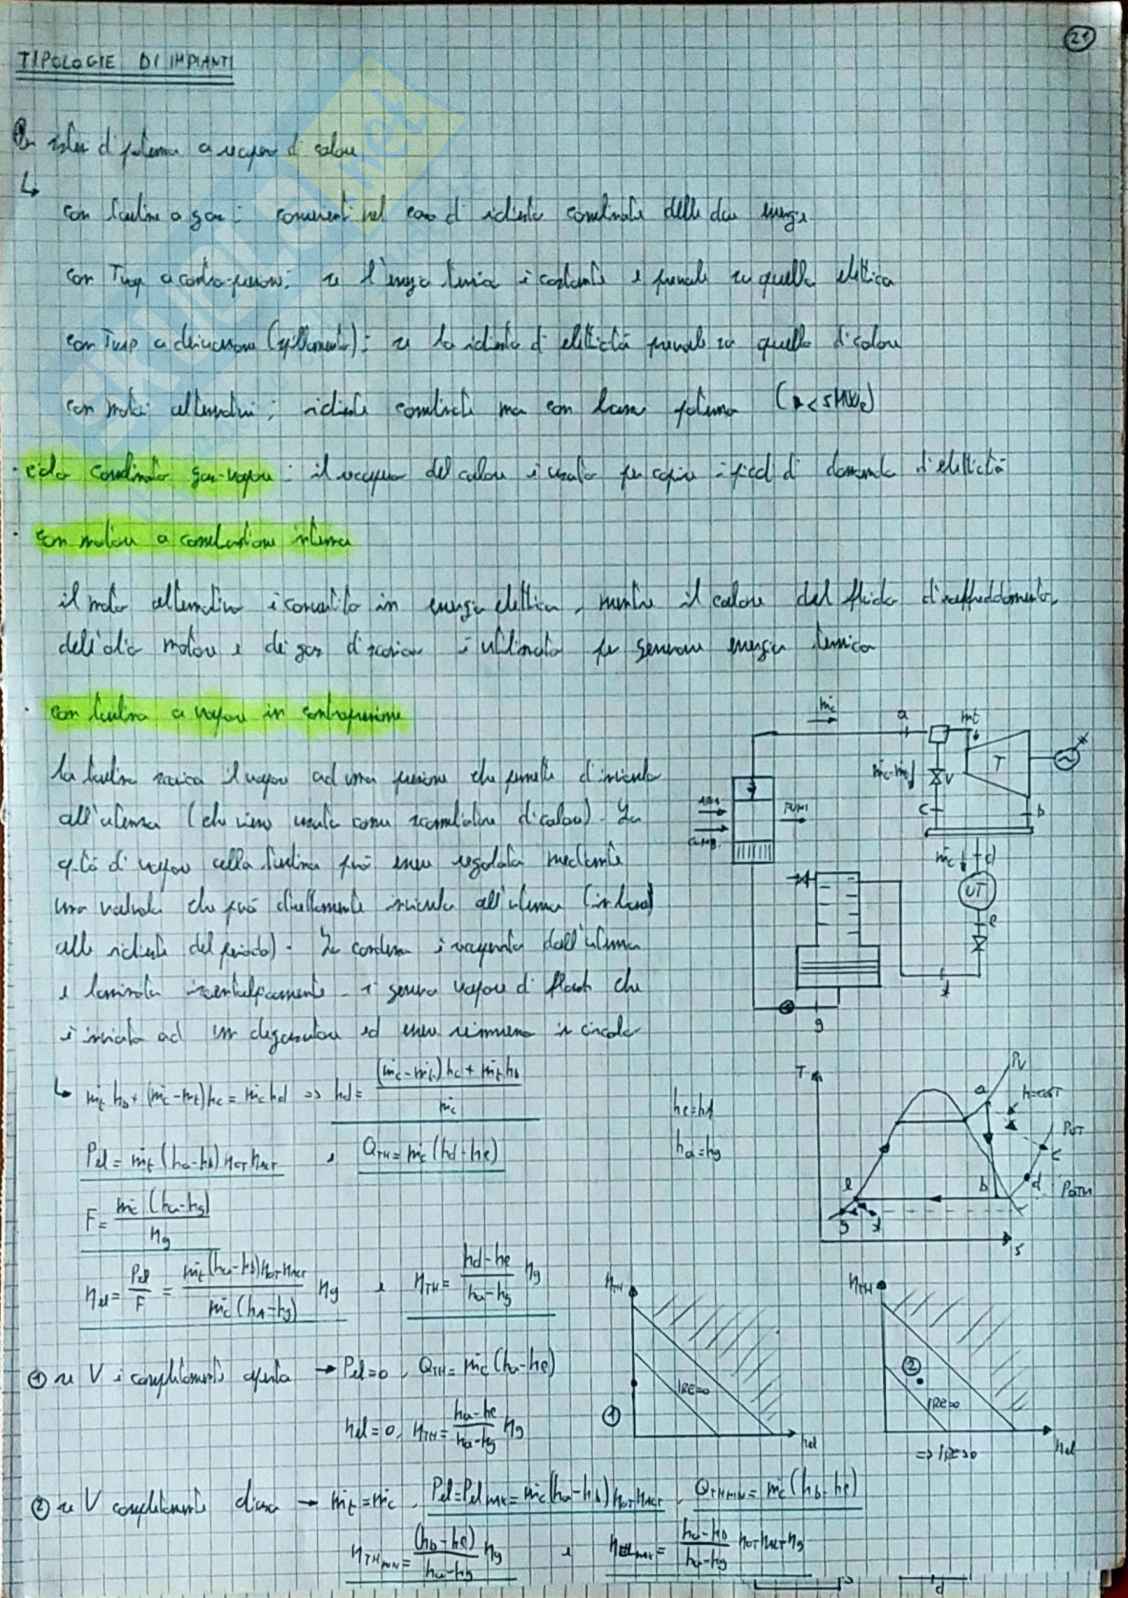 21
TIPOLOGIE DI IMPIANTI
di potenza a recupero di calore
↳
con turbina a gas: convenienti nel caso di richiesta combinata delle due energie
con Tvap a contropressione: se l'energia termica è costante e prevale su quella elettrica
con Tvap a derivazione (spillamento): se la richiesta di elettricità prevale su quella di calore
con motori alternativi: richieste combinate ma con bassa potenza (P<5MWe)
· ciclo combinato gas-vapore: il recupero del calore è usato per coprire i picchi di domanda d'elettricità
· con motore a combustione interna
il moto alternativo è convertito in energia elettrica, mentre il calore del fluido di raffreddamento,
dell'olio motore e dei gas di scarico è utilizzato per generare energia termica
· con turbina a vapore in contropressione
la turbina scarica il vapore ad una pressione che permette d'inviarlo
all'utenza (che viene usata come scambiatore di calore). La
q.tà di vapore nella turbina può essere regolata mediante
una valvola che può direttamente inviarlo all'utenza (in base
alle richieste del periodo). La condensa è recuperata dall'utenza
e laminata isoentalpicamente. si genera vapore di flash che
è inviato ad un degasatore ed essere rimesso in circolo
ṁc
a
ṁt
T
ṁc-ṁt
V
c
b
ARIA
COMB.
FUMI
ṁc
d
UT
e
f
g
↳ ṁt hb + (ṁc-ṁt)hc = ṁc hd => hd = (ṁc-ṁt)hc + ṁt hb / ṁc
hc=ha
Pel = ṁt (ha-hb) ηOT ηALT , QTH = ṁc (hd-he)
F = ṁc (ha-hg) / ηg
T
a
PV
h=cost
PUT
c
b
d
PATM
e
g
f
s
ηel = Pel / F = ṁt (ha-hb) ηOT ηALT / ṁc (ha-hg) ηg , ηTH = hd-he / ha-hg ηg
① se V è completamente aperta → Pel=0 , QTH = ṁc (ha-he)
ηel=0, ηTH = ha-he / ha-hg ηg
ηTH
IRE=0
①
ηel
ηTH
②
IRE=0
ηel
=> IRE>0
② se V completamente chiusa → ṁt=ṁc , Pel=Pel max = ṁc (ha-hb) ηOT ηALT , QTH MIN = ṁc (hb-he)
ηTH MIN = (hb-he) / ha-hg ηg e ηel max = ha-hb / ha-hg ηOT ηALT ηg
d